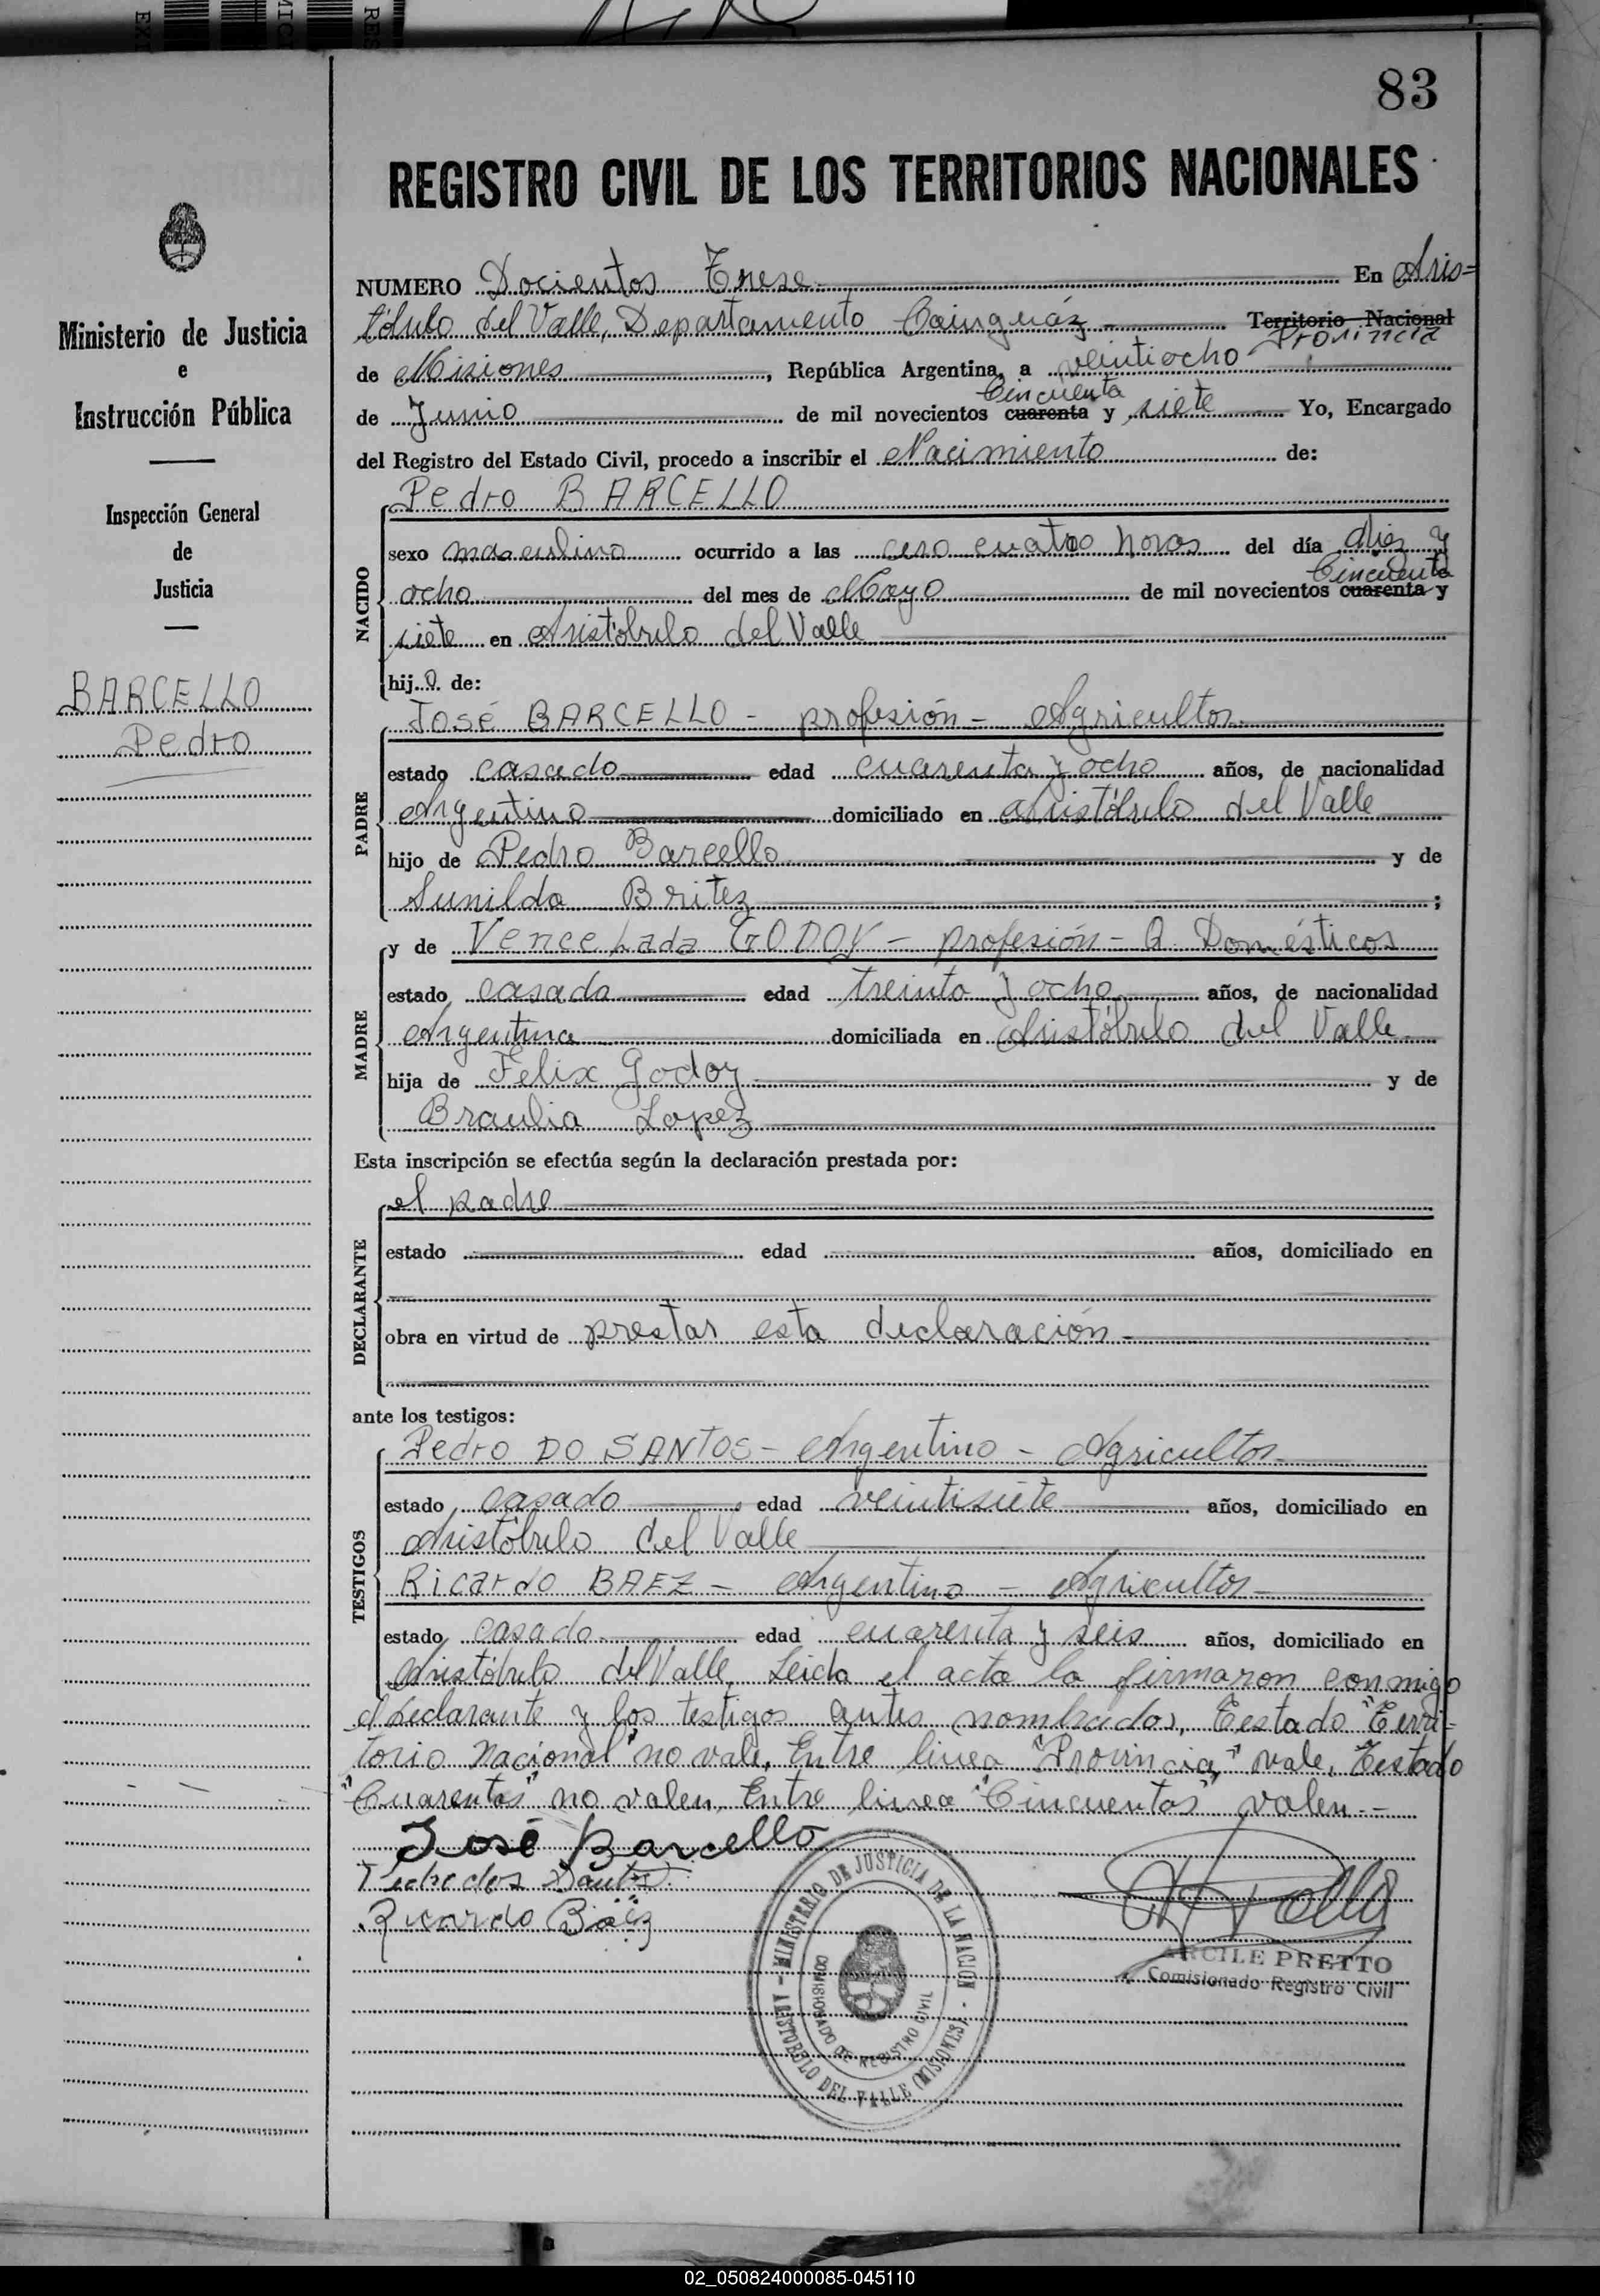 83
REGISTRO CIVIL DE LOS TERRITORIOS NACIONALES
Ministerio de Justicia
e
Instrucción Pública
Inspección General
de
Justicia
BARCELLO
Pedro
NUMERO Docientos Trese En Aris=
tóbulo del Valle, Departamento Cainguáz Territorio Nacional
Provincia
de Misiones, República Argentina, a veintiocho
Cincuenta
de Junio de mil novecientos cuarenta y siete Yo, Encargado
del Registro del Estado Civil, procedo a inscribir el Nacimiento de:
NACIDO
Pedro BARCELLO
sexo masculino ocurrido a las cero cuatro horas del día diez y
Cincuenta
ocho del mes de Mayo de mil novecientos cuarenta y
siete en Aristóbulo del Valle
hijo de:
PADRE
JOSÉ BARCELLO - profesión - Agricultor
estado casado edad cuarenta y ocho años, de nacionalidad
Argentino domiciliado en Aristóbulo del Valle
hijo de Pedro Barcello y de
Sunilda Britez ;
MADRE
y de Vencelada GODOY - profesión - Q. Domésticos
estado casada edad treinta y ocho años, de nacionalidad
Argentina domiciliada en Aristóbulo del Valle
hija de Felix Godoy y de
Braulia Lopez
Esta inscripción se efectúa según la declaración prestada por:
DECLARANTE
el padre
estado edad años, domiciliado en
obra en virtud de prestar esta declaración -
ante los testigos:
TESTIGOS
Pedro DO SANTOS - Argentino - Agricultor
estado casado edad veintisiete años, domiciliado en
Aristóbulo del Valle
Ricardo BAEZ - Argentino - Agricultor
estado casado edad cuarenta y seis años, domiciliado en
Aristóbulo del Valle, Leida el acta la firmaron conmigo
el declarante y los testigos antes nombrados, Testado "Terri-
torio Nacional" no vale, Entre linea "Provincia" vale, Testado
"Cuarentas" no valen, Entre linea "Cincuentas" valen -
José Barcello
Pedro dos Santo
Ricardo Báez
MINISTERIO DE JUSTICIA DE LA NACIÓN
COMISIONADO DE REGISTRO CIVIL
ARISTOBULO DEL VALLE (MISIONES)
ARCILE PRETTO
Comisionado Registro Civil
02_050824000085-045110